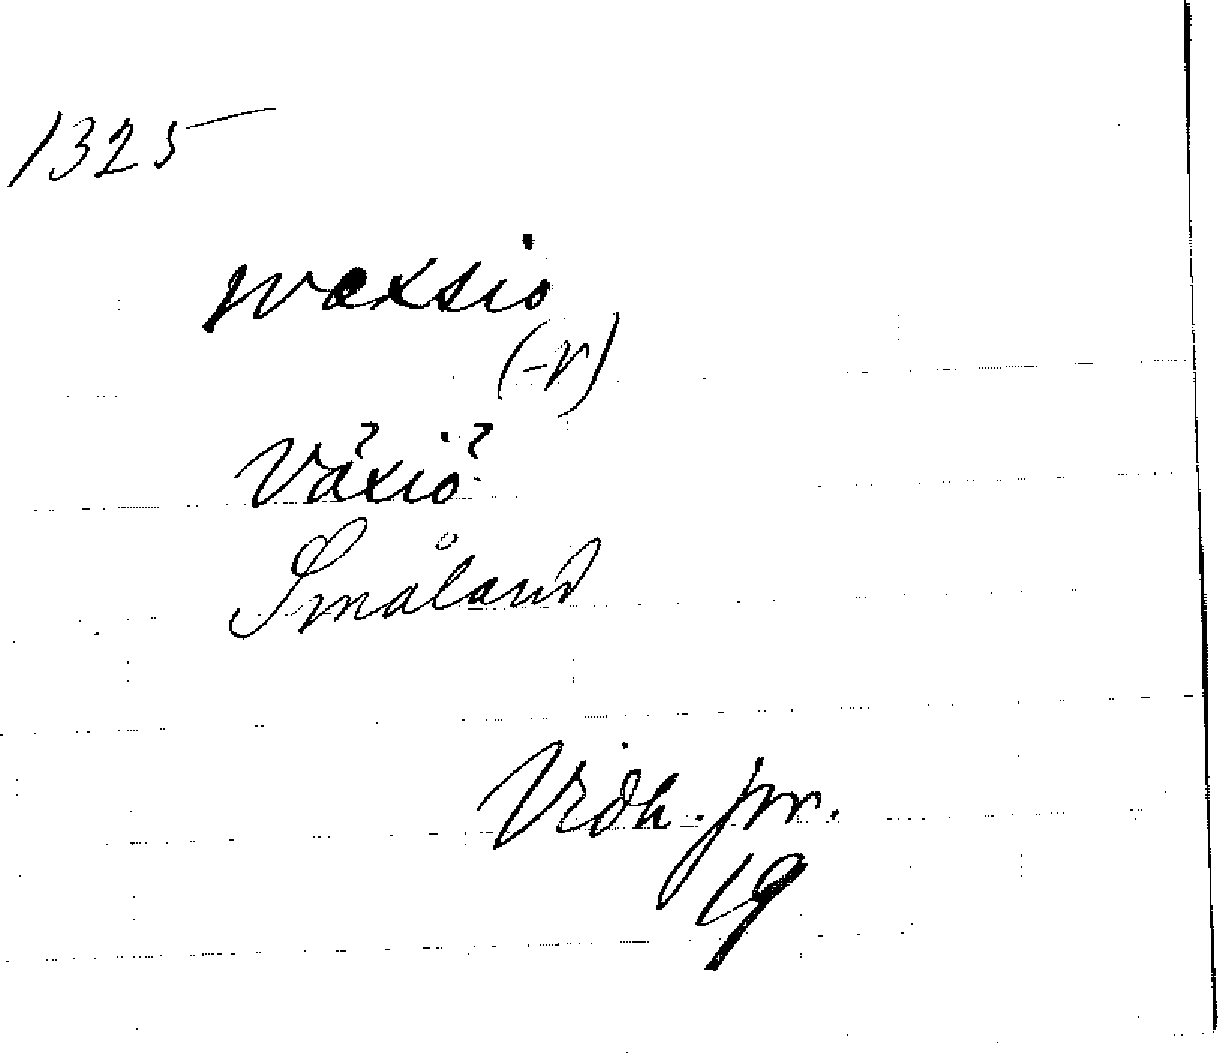 1325
wæxsio
(-r)
Växiö
Småland
Vidh. pr.
19